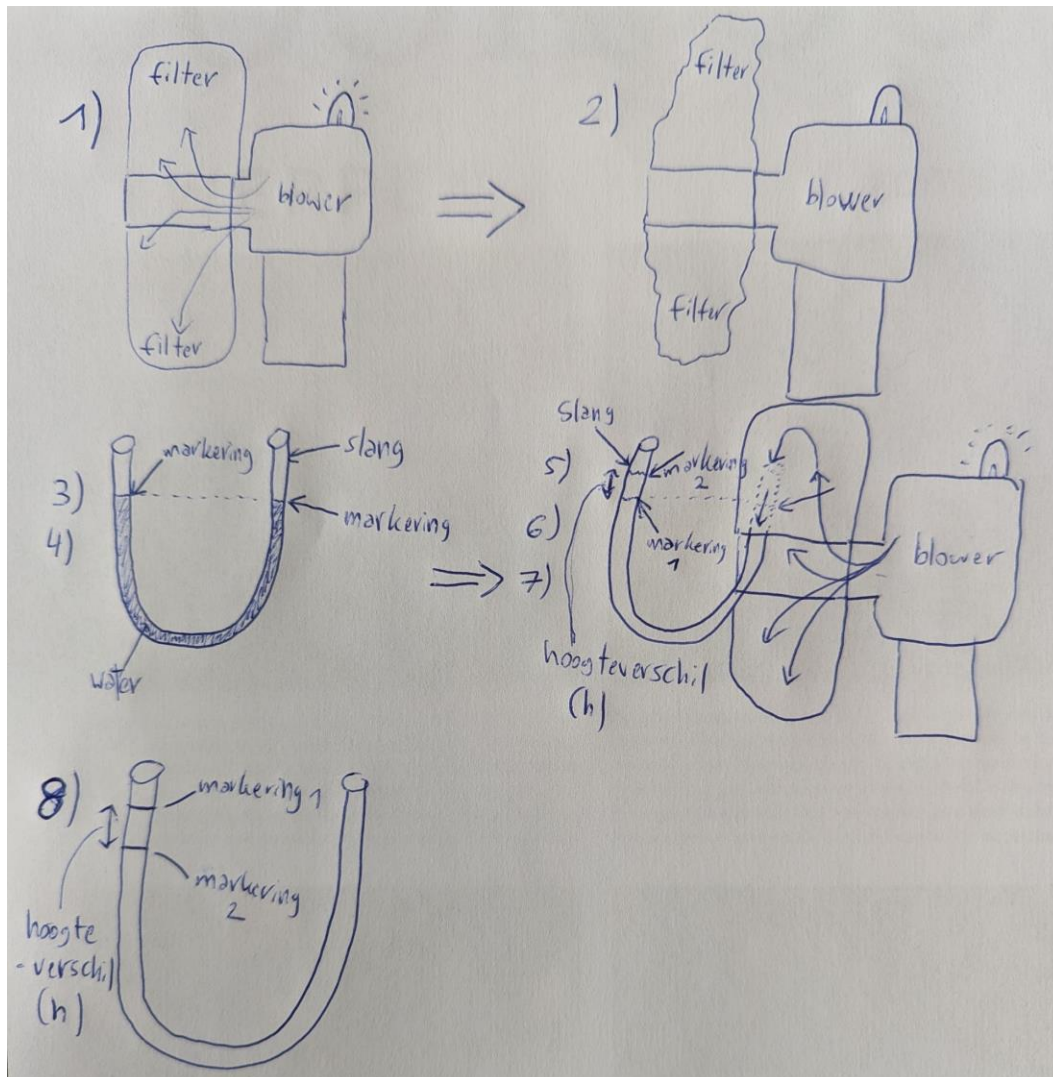 1)
filter
blower
filter
2)
filter
blower
filter
3)
4)
markering
slang
markering
water
5)
6)
7)
Slang
markering
2
markering
1
hoogteverschil
(h)
blower
8)
markering 1
markering
2
hoogte
-verschil
(h)